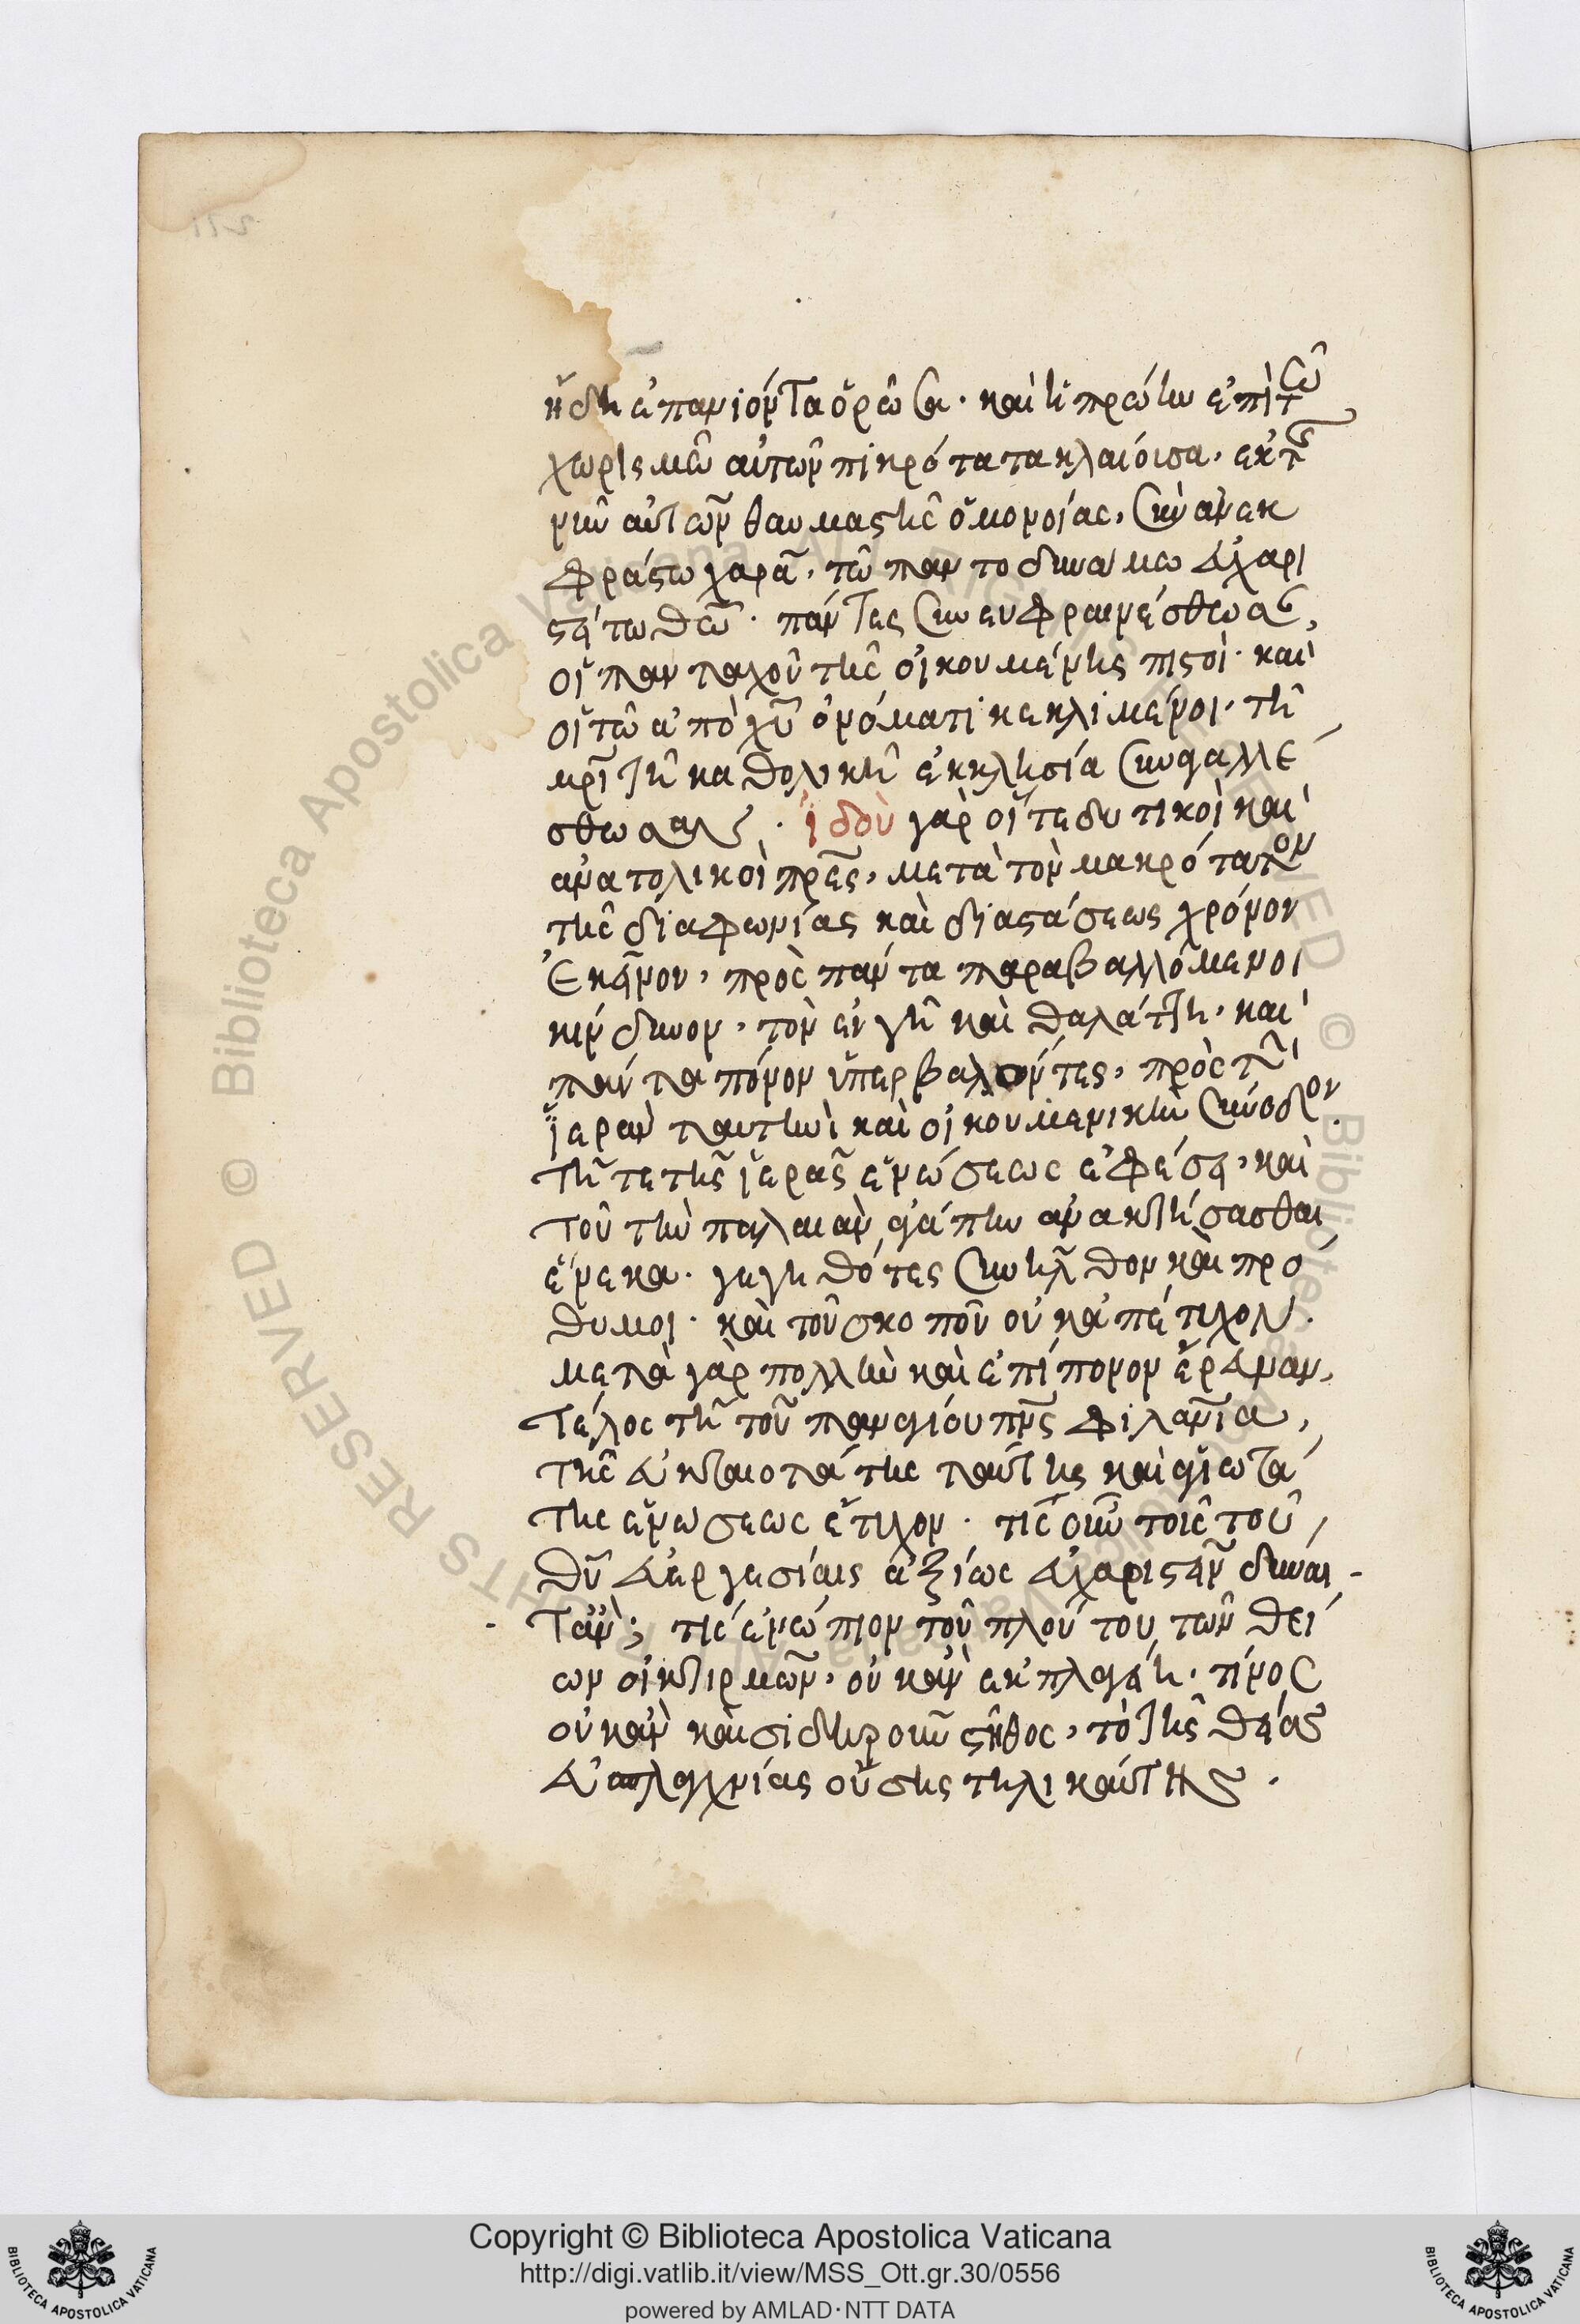 ἤδη ἐπανιόντα ὁρῶσα· καὶ ἡ πρώην ἐπὶ τῶ
χωρισμῶ αὐτῶν πικρότατα κλαίουσα, ἐκ τῆς
νῦν αὐτῶν θαυμαστῆς ὁμονοίας, σὺν ἀνεκ
φράστω χαρᾶ, τῶ παντοδυνάμω εὐχαρι
στείτω θεῶ· πάντες συνευφραινέσθωσαν,
οἱ πανταχοῦ τῆς οἰκουμένης πιστοί· καὶ
οἱ τῶ ἀπὸ χυ ὀνόματι κεκλιμένοι· τῆ
μρι τῆ καθολικῆ ἐκκλησία συναγαλλέ
σθωσαν· ἰδοὺ γὰρ οἵ τε δυτικοὶ καὶ
ἀνατολικοὶ πρες, μετὰ τὸν μακρότατον
τῆς διαφωνίας καὶ διαστάσεως χρόνον
ἐκεῖνον, πρὸς πάντα παραβαλλόμενοι
κίνδυνον, τὸν ἐν γῆ καὶ θαλάττη, καὶ
πάντα πόνον ὑπερβαλόντες, πρὸς τὴν
ἱερὰν ταύτην καὶ οἰκουμενικὴν σύνοδον.
τῆ τε τῆς ἱερᾶς ἑνώσεως ἐφέσει, καὶ
τοῦ τὴν παλαιὰν ἀγάπην ἀνακτήσασθαι
ἕνεκα· γεγηθότες συνῆλθον καὶ πρό
θυμοι· καὶ τοῦ σκοποῦ οὐκ ἀπέτυχον.
μετὰ γὰρ πολλὴν καὶ ἐπίπονον ἔρευναν,
τέλος τῆ τοῦ παναγίου πνς φιλανία,
τῆς εὐκταιοτάτης ταύτης καὶ ἁγιωτά
της ἑνώσεως ἔτυχον· τίς οὖν τοῖς τοῦ
θυ εὐεργεσίαις ἀξίως εὐχαριστεῖν δύναι-
τ' ἄν; τίς ἐνώπιον τοῦ πλούτου τῶν θεί
ων οἰκτιρμῶν, οὐκ ἂν ἐκπλαγείη· τίνος
οὐκ ἂν καὶ σιδηροῦν στῆθος, τὸ τῆς θείας
εὐσπλαγχνίας οὔσης τηλικαύτης.
Copyright © Biblioteca Apostolica Vaticana
http://digi.vatlib.it/view/MSS_Ott.gr.30/0556
powered by AMLAD·NTT DATA